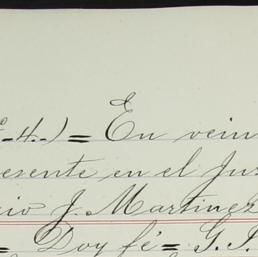 -4.) = En vein
esente en el Ju
cio J. Martinez
= Doy fé = G. P.